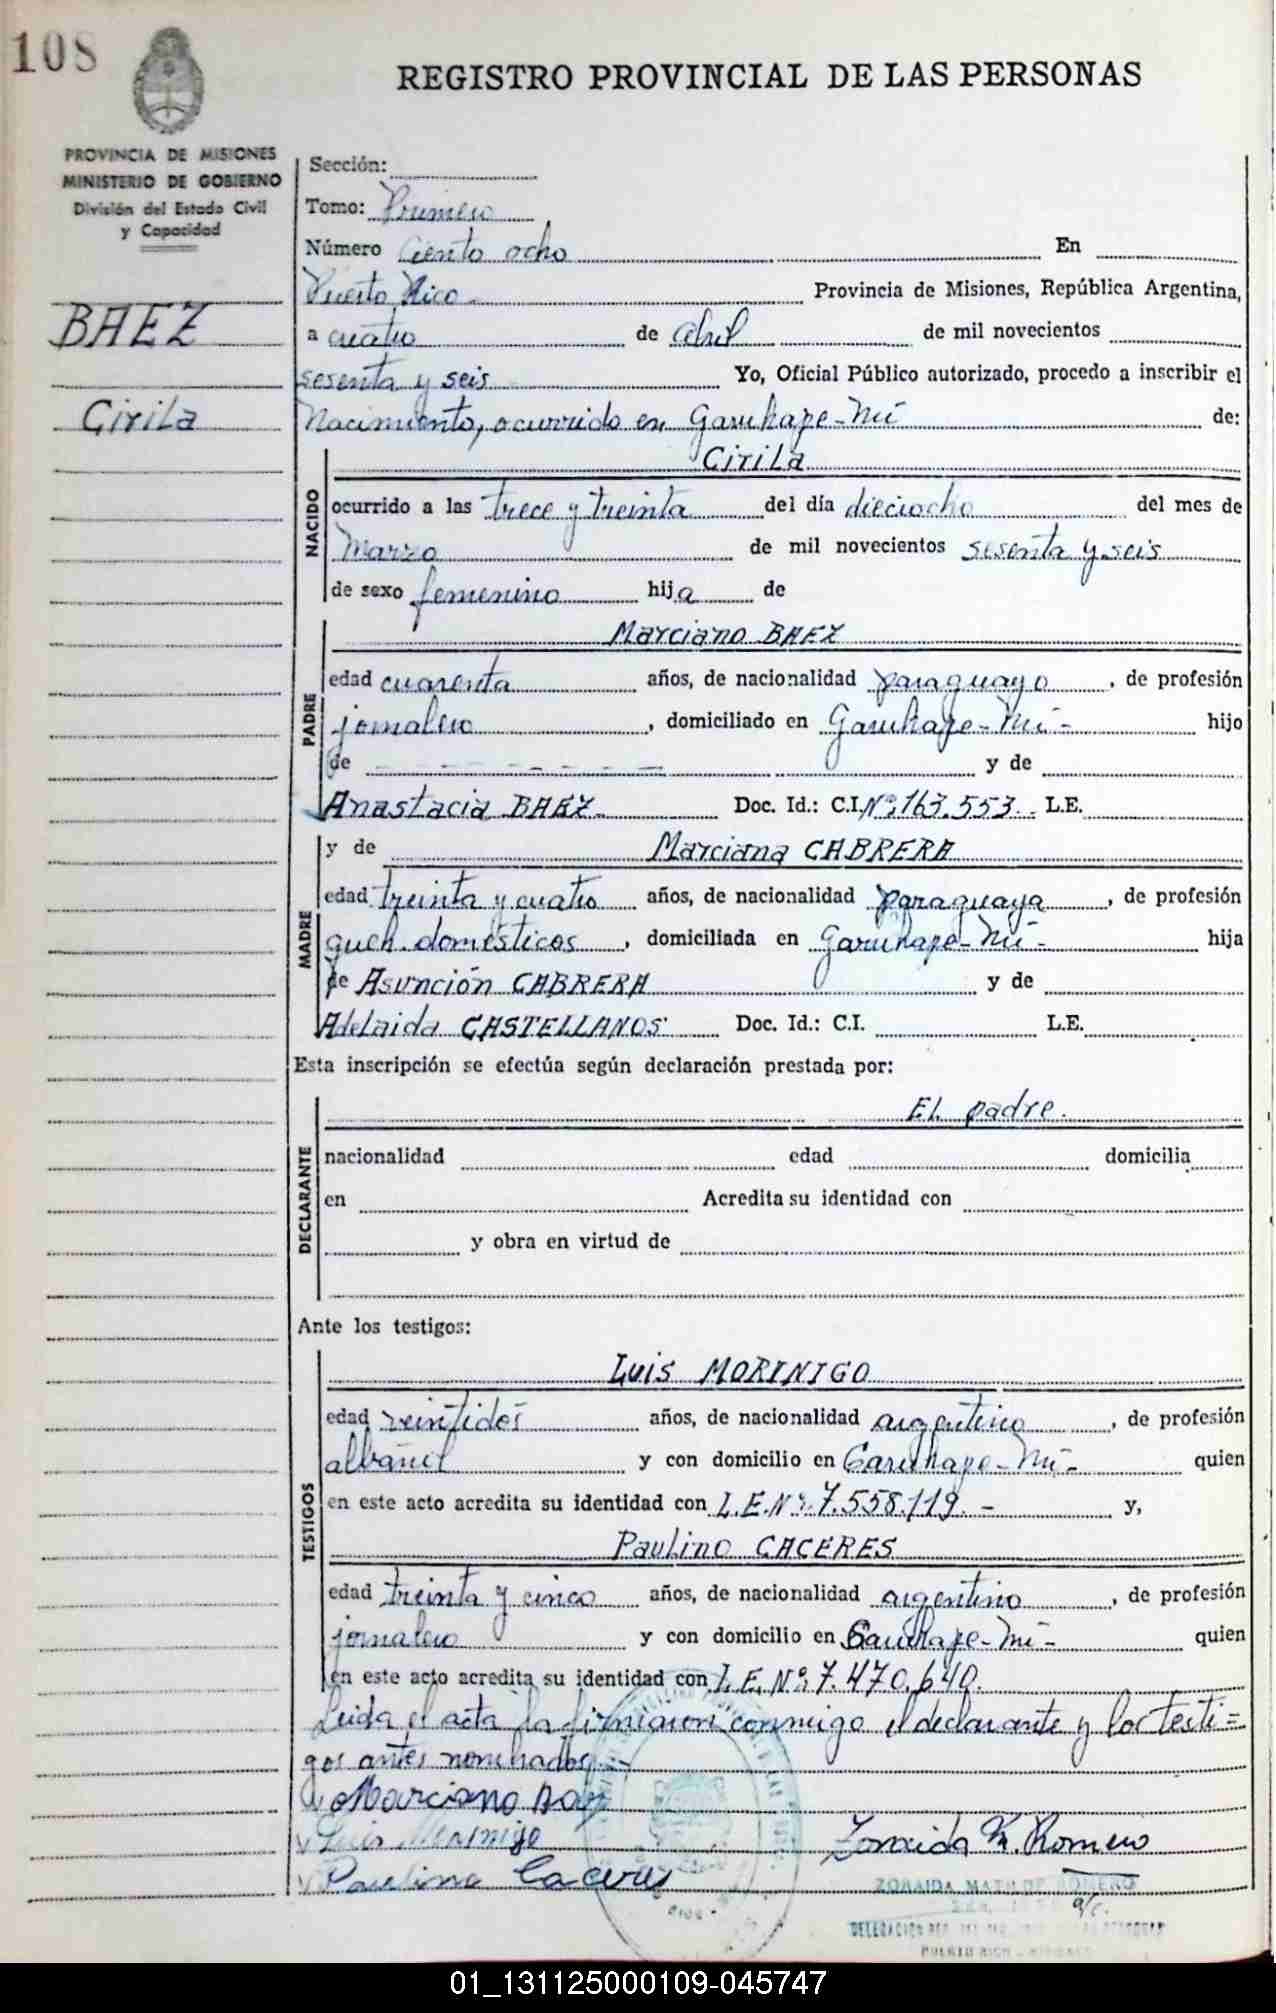 108
REGISTRO PROVINCIAL DE LAS PERSONAS
PROVINCIA DE MISIONES
MINISTERIO DE GOBIERNO
División del Estado Civil
y Capacidad
BAEZ
Cirila
Sección:
Tomo: Primero
Número Ciento ocho En
Puerto Rico - Provincia de Misiones, República Argentina,
a cuatro de abril de mil novecientos
sesenta y seis Yo, Oficial Público autorizado, procedo a inscribir el
Nacimiento, ocurrido en Garuhape-Mí de:
NACIDO
Cirila
ocurrido a las trece y treinta del día dieciocho del mes de
Marzo de mil novecientos sesenta y seis
de sexo femenino hija de
PADRE
Marciano BAEZ
edad cuarenta años, de nacionalidad paraguayo, de profesión
jornalero, domiciliado en Garuhape-Mí- hijo
de - - - - - - y de
Anastacia BAEZ Doc. Id.: C.I. Nº 163.553. L.E.
MADRE
y de Marciana CABRERA
edad treinta y cuatro años, de nacionalidad paraguaya, de profesión
queh. domésticos, domiciliada en Garuhape-Mí- hija
de Asunción CABRERA y de
Adelaida CASTELLANOS Doc. Id.: C.I. L.E.
Esta inscripción se efectúa según declaración prestada por:
DECLARANTE
El padre.
nacionalidad edad domicilia
en Acredita su identidad con
y obra en virtud de
Ante los testigos:
TESTIGOS
Luis MORINIGO
edad veintidós años, de nacionalidad argentino, de profesión
albañil y con domicilio en Garuhape-Mí- quien
en este acto acredita su identidad con L.E.Nº 7.558.119.- y,
Paulino CACERES
edad treinta y cinco años, de nacionalidad argentino, de profesión
jornalero y con domicilio en Garuhape-Mí- quien
en este acto acredita su identidad con L.E.Nº 7.470.640.
Leida el acta la firmaron conmigo el declarante y los testi=
gos antes nombrados.-
Marciano Baz
Luis Morinigo
Zoraida M. Romero
Paulino Caceres
ZORAIDA ROMERO
a/c.
DELEGACION
PUERTO RICO - MISIONES
01_131125000109-045747